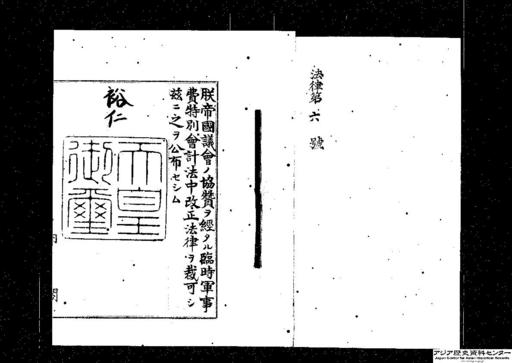 法律第六號
朕帝國議會ノ協贊ヲ經タル臨時軍事
費特別會計法中改正法律ヲ裁可シ
玆ニ之ヲ公布セシム
裕仁
天皇
御璽
アジア歴史資料センター
Japan Center for Asian Historical Records